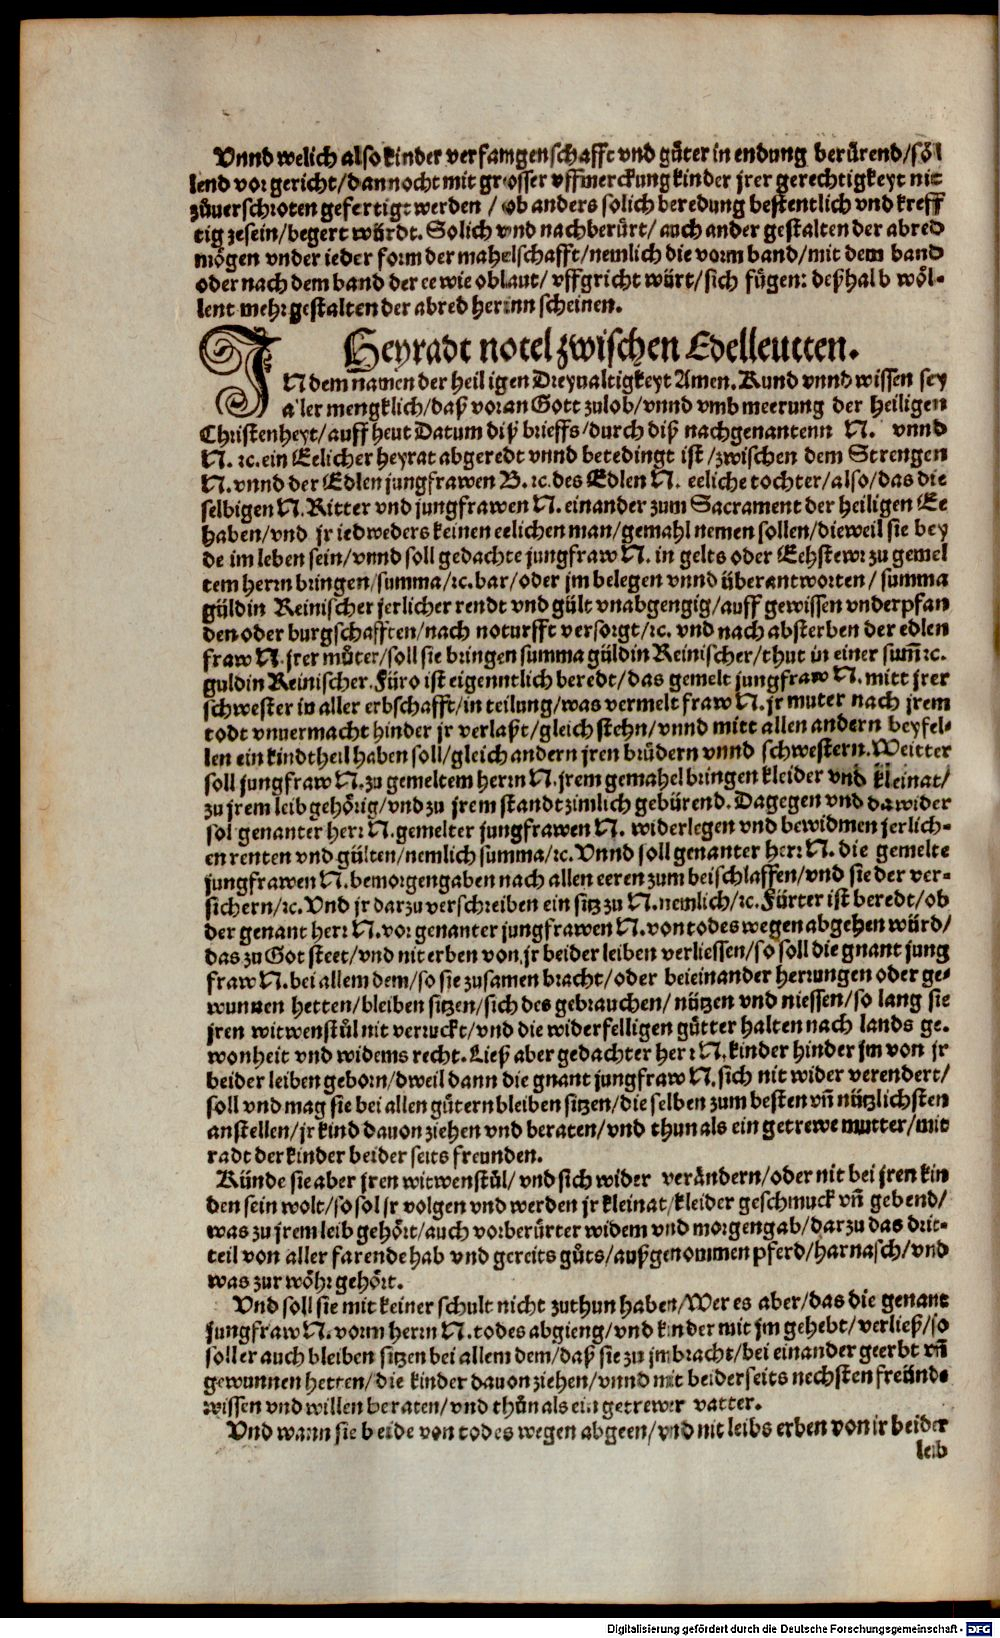 Vnnd welich also kinder verfamgenschafft vnd gůter in endung berürend/söl
lend vor gericht/dannocht mit grosser vffmerckung kinder jrer gerechtigkeyt nit
zůuerschroten gefertigt werden / ob anders solich beredung bestentlich vnd kreff
tig zesein/begert würdt. Solich vnd nachberürt/ auch ander gestalten der abred
mögen vnder ieder form der mahelschafft/nemlich die vorm band/mit dem band
oder nach dem band der ee wie oblaut/ vffgricht würt/sich fügen: deßhalb wöl-
lent mehr gestalten der abred herinn scheinen.
Heyradt notel zwischen Edelleutten.
IN dem namen der heiligen Dreyualtigkeyt Amen. Kund vnnd wissen sey
aller mengklich/daß voran Gott zulob/vnnd vmb meerung der heiligen
Christenheyt/auff heut Datum diß brieffs/durch diß nachgenantenn N. vnnd
N. ꝛc. ein Eelicher heyrat abgeredt vnnd betedingt ist/zwischen dem Strengen
N. vnnd der Edlen jungfrawen B. ꝛc. des Edlen N. eeliche tochter/also/das die
selbigen N. Ritter vnd jungfrawen N. einander zum Sacrament der heiligen Ee
haben/vnd jr iedweders keinen eelichen man/gemahl nemen sollen/dieweil sie bey
de im leben sein/vnnd soll gedachte jungfraw N. in gelts oder Eehstewr zu gemel
tem herrn bringen/summa/ꝛc. bar/oder jm belegen vnnd überantworten/ summa
güldin Reinischer jerlicher rendt vnd gült vnabgengig/auff gewissen vnderpfan
den oder burgschafften/nach noturfft versorgt/ꝛc. vnd nach absterben der edlen
fraw N. jrer můter/soll sie bringen summa güldin Reinischer/thut in einer sum̃ ꝛc.
guldin Reinischer. Füro ist eigenntlich beredt/das gemelt jungfraw N. mitt jrer
schwester in aller erbschafft/in teilung/was vermelt fraw N. jr muter nach jrem
todt vnuermacht hinder jr verlaßt/gleich stehn/vnnd mitt allen andern beyfel-
len ein kindtheil haben soll/gleich andern jren brüdern vnnd schwestern. Weitter
soll jungfraw N. zu gemeltem herrn N. jrem gemahel bringen kleider vnd kleinat/
zu jrem leib gehörig/vnd zu jrem standt zimlich gebürend. Dagegen vnd dawider
sol genanter herr N. gemelter jungfrawen N. widerlegen vnd bewidmen jerlich-
en renten vnd gülten/nemlich summa/ꝛc. Vnnd soll genanter herr N. die gemelte
jungfrawen N. bemorgengaben nach allen eeren zum beischlaffen/vnd sie der ver-
sichern/ꝛc. Vnd jr darzu verschreiben ein sitz zu N. nemlich/ꝛc. Fürter ist beredt/ob
der genant herr N. vor genanter jungfrawen N. von todes wegen abgehen würd/
das zu Got steet/vnd nit erben von jr beider leiben verliessen/so soll die gnant jung
fraw N. bei allem dem/so sie zusamen bracht/oder beieinander herrungen oder ge-
wunnen hetten/bleiben sitzen/sich des gebrauchen/ nützen vnd niessen/so lang sie
jren witwenstůl nit verruckt/vnd die widerfelligen gütter halten nach lands ge.
wonheit vnd widems recht. Ließ aber gedachter herr N. kinder hinder jm von jr
beider leiben geborn/dweil dann die gnant jungfraw N. sich nit wider verendert/
soll vnd mag sie bei allen gütern bleiben sitzen/die selben zum besten vñ nützlichsten
anstellen/jr kind dauon ziehen vnd beraten/vnd thun als ein getrewe mutter/mit
radt der kinder beider seits freunden.
Künde sie aber jren witwenstůl/ vnd sich wider verändern/oder nit bei jren kin
den sein wolt/so sol jr volgen vnd werden jr kleinat/kleider geschmuck vñ gebend/
was zu jrem leib gehört/auch vorberürter widem vnd morgengab/darzu das drit-
teil von aller farende hab vnd gereits gůts/außgenommen pferd/harnasch/vnd
was zur wöhr gehört.
Vnd soll sie mit keiner schult nicht zuthun haben/Wer es aber/das die genant
jungfraw N. vorm herrn N. todes abgieng/vnd kinder mit jm gehebt/verließ/so
soll er auch bleiben sitzen bei allem dem/daß sie zu jm bracht/bei einander geerbt vñ
gewunnen hetten/die kinder dauon ziehen/vnnd mit beiderseits nechsten freünde
wissen vnd willen beraten/vnd thůn als ein getrewer vatter.
Vnd wann sie beide von todes wegen abgeen/vnd nit leibs erben von ir beider
leib
Digitalisierung gefördert durch die Deutsche Forschungsgemeinschaft - DFG